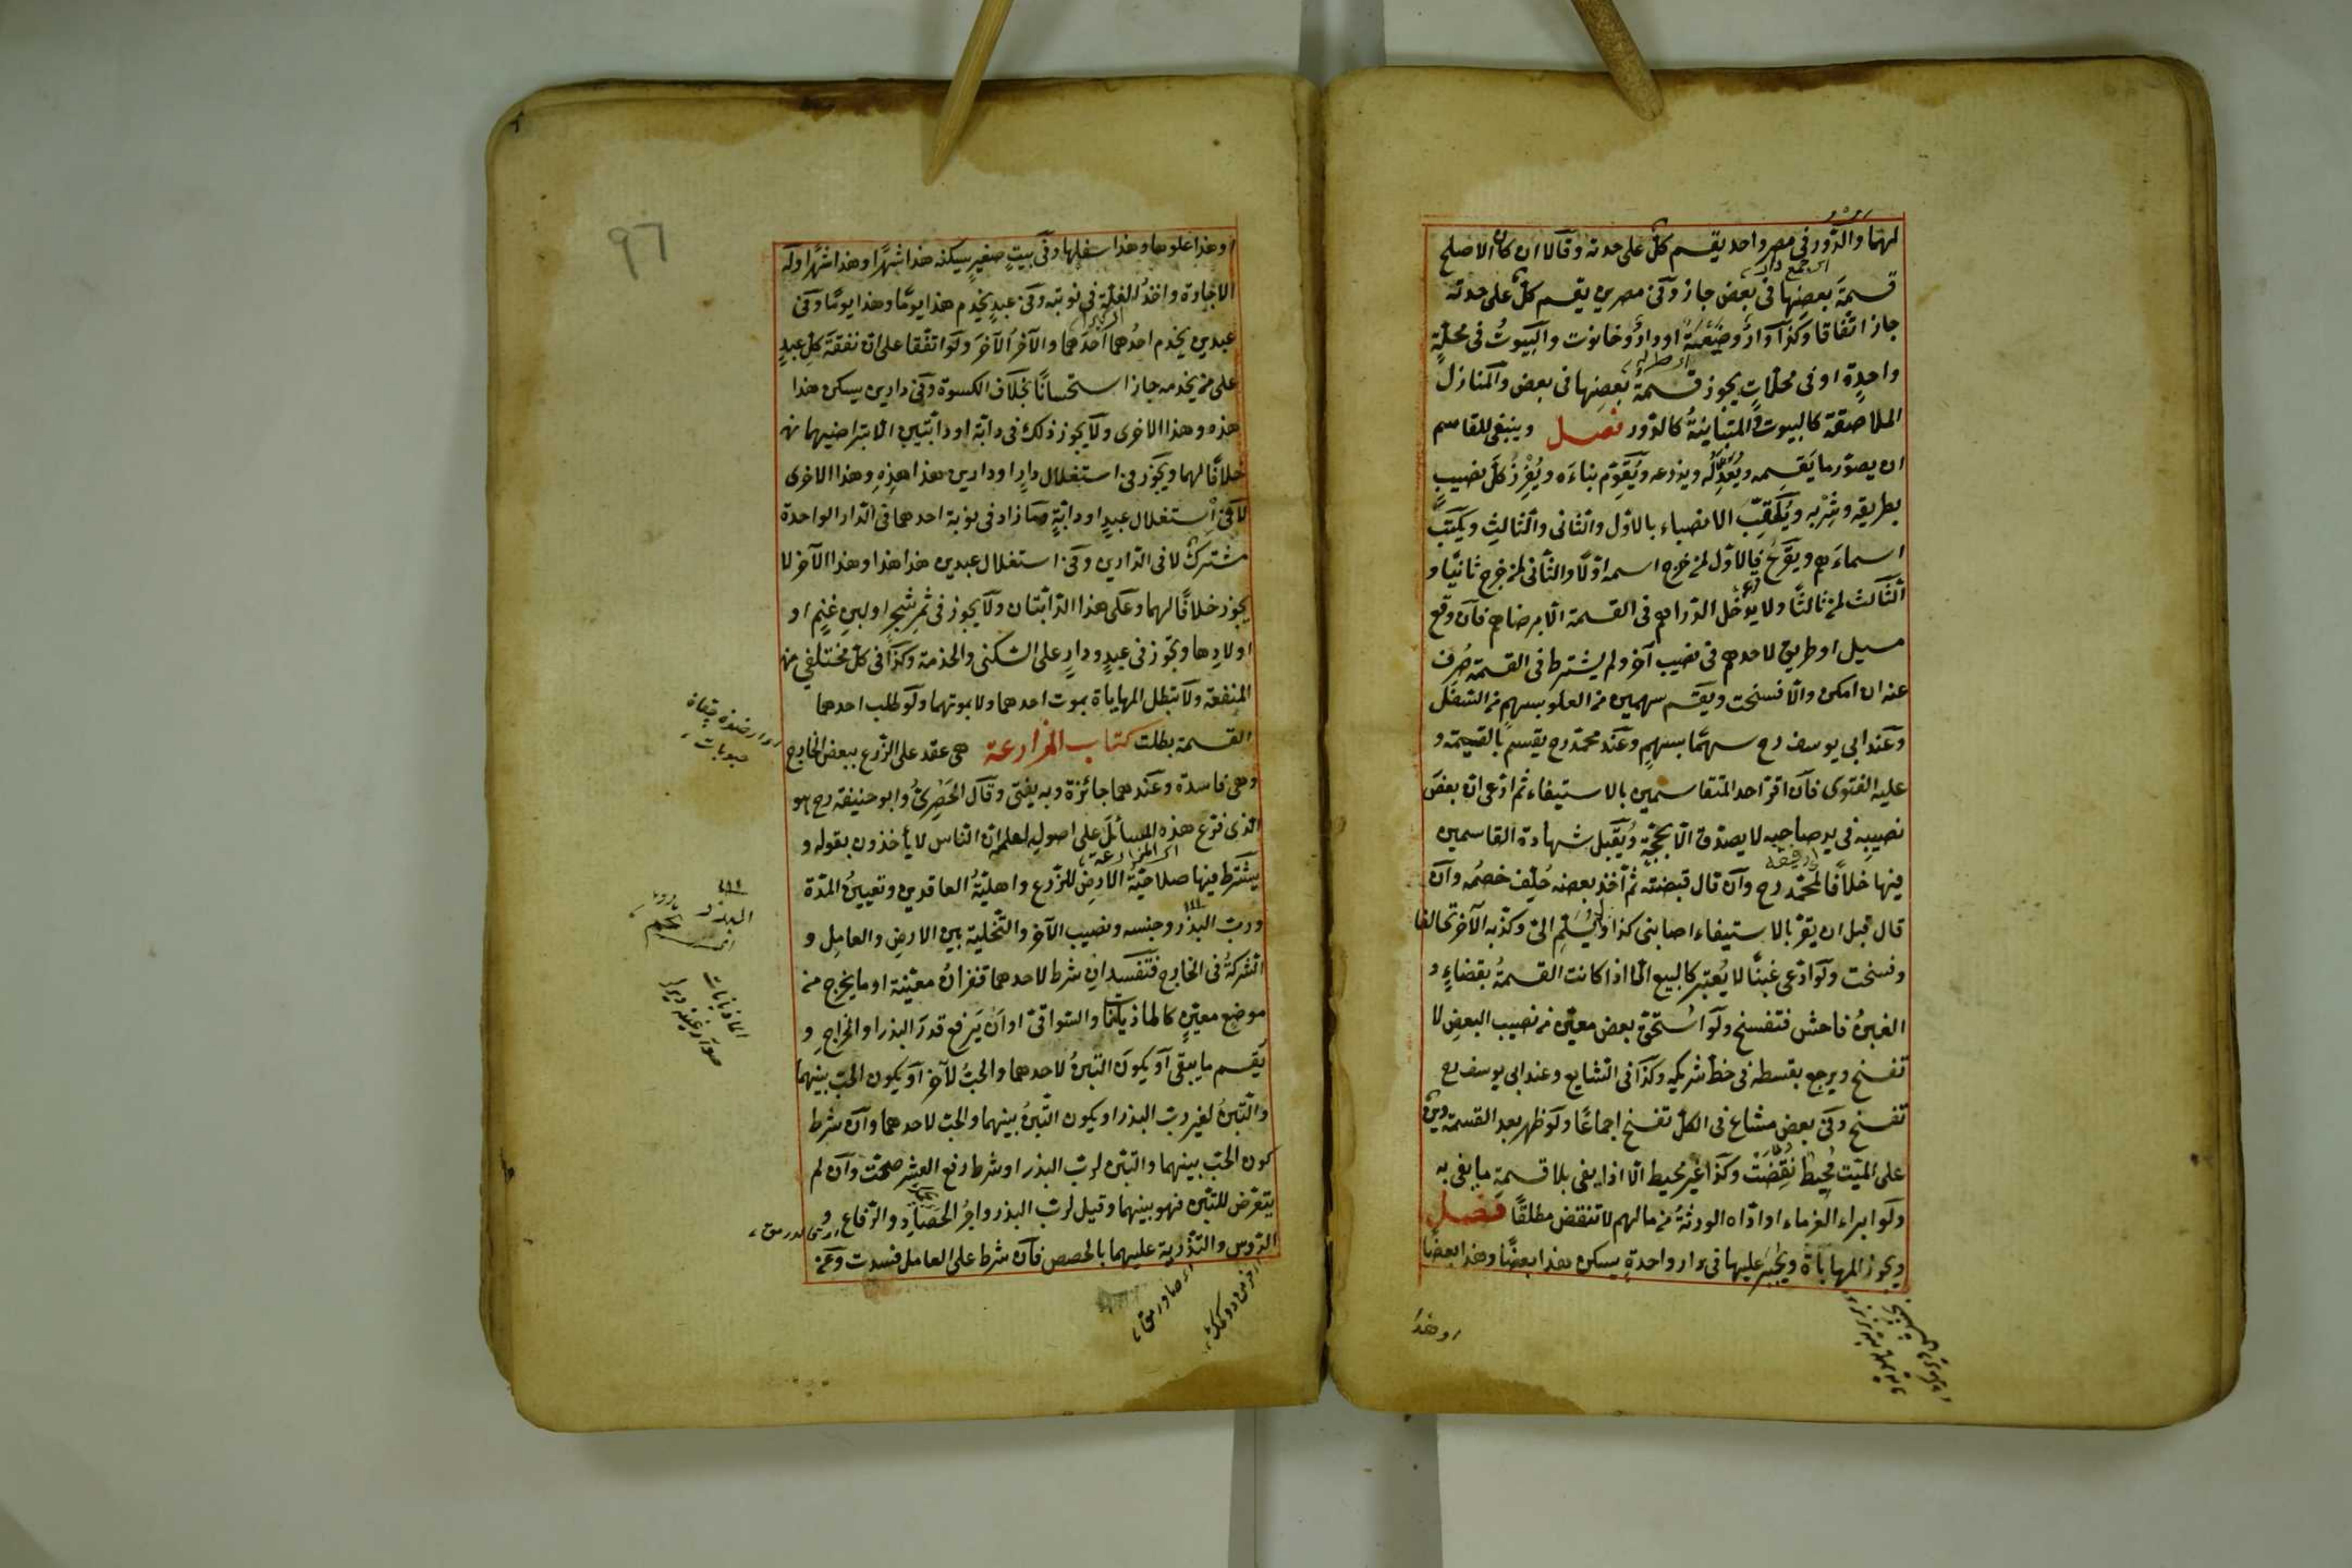 لهما والدّور فى مصر واحد يقسم كلّ على حدته وقالا ان كان الاصلح
قسمة بعضها فى بعض جاز وفى مصرين يقسم كلّ على حدته
جاز اتّفاقا وكذا دار وضيعة او دار وحانوت والبيوت فى محلّة
واحدة او فى محلّات يجوز قسمة بعضها فى بعض والمنازل
الملاصقة كالبيوت والمتباينة كالدّور فصل وينبغى للقاسم
ان يصوّر ما يقسمه ويعدله ويذرعه ويقوّم بناءه ويفرز كلّ نصيب
بطريقه وشربه ويلقّب الانصباء بالاوّل والثانى والثالث ويكتب
اسماءهم ويقرع فالاوّل لمن خرج اسمه اوّلا والثانى لمن خرج ثانيا و
الثالث لمن ثالثا ولا يدخل الدراهم فى القسمة الّا برضاهم فان وقع
مسيل او طريق لاحدهم فى نصيب آخر ولم يشترط فى القسمة صرف
عنه ان امكن والّا فسخت ويقسم سهمين من العلو بسهم من السّفل
وعند ابى يوسف رح سهما بسهم وعند محمّد رح يقسم بالقيمة و
عليه الفتوى فان اقرّ احد المتقاسمين بالاستيفاء ثم ادّعى ان بعض
نصيبه فى يد صاحبه لا يصدّق الّا بحجّة وتقبل شهادة القاسمين
فيها خلافا لمحمّد رح وان قال قبضته ثم اخذ بعضه حلّف خصمه وان
قال قبل ان يقرّ بالاستيفاء اصابنى كذا ولم يسلّم الىّ وكذّبه الآخر تحالفا
وفسخت ولو ادّعى غبنا لا يعتبر كالبيع الّا اذا كانت القسمة بقضاء و
الغبن فاحش فتفسخ ولو استحقّ بعض معيّن من نصيب البعض لا
تفسخ ويرجع بقسطه فى حظّ شريكه وكذا فى الشايع وعند ابى يوسف رح
تفسخ وفى بعض مشاع فى الكلّ تفسخ اجماعا ولو ظهر بعد القسمة دين
على الميّت محيط نقضت وكذا غير محيط الّا اذا بقى بلا قسمة ما يفى به
ولو ابراء الغرماء او ادّاه الورثة من مالهم لا تنقض مطلقا فصل
ويجوز المهاياة ويجبر عليها فى دار واحدة يسكن هذا بعضا وهذا بعضا
او هذا
97
او هذا علوها وهذا سفلها وفى بيت صغير يسكنه هذا شهرا وهذا شهرا وله
الاجارة واخذ الغلّة فى نوبته وفى عبد يخدم هذا يوما وهذا يوما وفى
عبدين يخدم احدهما احدهما والآخر الآخر ولو اتّفقا على ان نفقة كل عبد
على من يخدمه جاز استحسانا بخلاف الكسوة وفى دارين يسكن هذا
هذه وهذا الاخرى ولا يجوز ذلك فى دابّة او دابّتين الّا بتراضيهما
خلافا لهما ويجوز فى استغلال دار او دارين هذا هذه وهذا الاخرى
لا فى استغلال عبد او دابّة وما زاد فى نوبة احدهما فى الدار الواحدة
مشترك لا فى الدارين وفى استغلال عبدين هذا هذا وهذا الآخر لا
يجوز خلافا لهما وعلى هذا الدابّتان ولا يجوز فى ثمر شجر او لبن غنم او
اولادها ويجوز فى عبد ودار على السّكنى والخدمة وكذا فى كلّ مختلفى
المنفعة ولا تبطل المهاياة بموت احدهما ولا بموتهما ولو طلب احدهما
القسمة بطلت كتاب المزارعة هى عقد على الزّرع ببعض الخارج
وهى فاسدة وعندهما جائزة وبه يفتى وقال الحصرىّ وابو حنيفة رح هو
الذى فرّع هذه المسائل على اصوله لعلمه ان الناس لا يأخذون بقوله و
يشترط فيها صلاحيّة الارض للزّرع واهليّة العاقدين وتعيين المدّة
وربّ البذر وجنسه ونصيب الآخر والتّخلية بين الارض والعامل و
الشركة فى الخارج فتفسد ان شرط لاحدهما قفزان معيّنة او ما يخرج من
موضع معيّن كالماذيانات والسّواقى او ان يرفع قدر البذر او الخراج و
يقسم ما يبقى او يكون التّبن لاحدهما والحبّ للآخر او يكون الحبّ بينهما
والتّبن لغير ربّ البذر او يكون التّبن بينهما والحبّ لاحدهما وان شرط
كون الحبّ بينهما والتبن لربّ البذر او شرط رفع العشر صحّت وان لم
يتعرّض للتبن فهو بينهما وقيل لربّ البذر واجر الحصاد والرّفاع و
الدّوس والتّذرية عليهما بالحصص فان شرط على العامل فسدت وعن